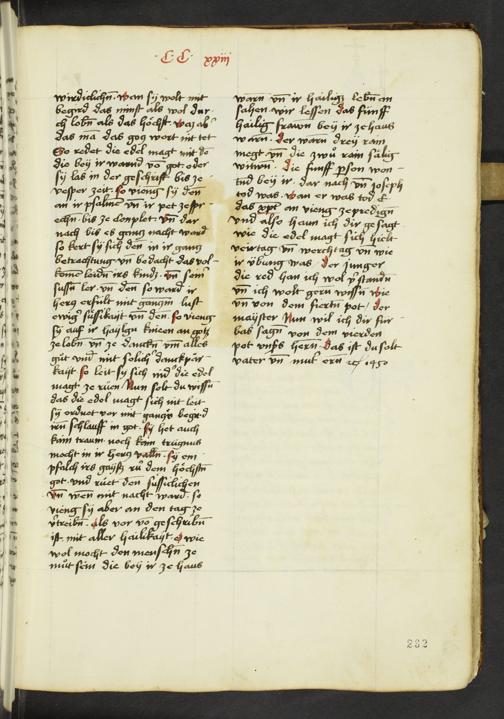 C C xxiij
wirdiclichn̄ wan sy wolt nit
begird das minst als wol dur
ch lobn̄ als das höchst was ab
das ma das gog wort nit tet
So redet die edel magt mit dē
die bey ir warnd vō got oder
sy las in der geschrift bis ze
vesper zeit so vieng sy den
an ir psalmē vn̄ ir pet zesp
echn̄ bis ze complet vn̄ dar
nach bis es gancz nacht ward
so kert sy sich den in ir gancz
betrachtung vn̄ bedacht das vol
komē leidn̄ irs kindz vn̄ sein
sussn̄ ler vn̄ den so ward ir
hercz erfult mit ganczm̄ lust
ewig sussikayt vn̄ den so vieng
sy auf ir haylgn̄ knieen an got
ze lobn̄ vn̄ ze danckn̄ vm̄ alles
gůt vnd mit solich danckpär
kayt so leit sy sich nid die edel
magt ze rüen Nun solt du wissn̄
das die edel magt sich nit leit
sy ordnet vor mit ganczr begird
irn̄ schlauff in got sy het auch
kain traum noch kain trugnus
mocht in ir hercz valln̄ sy em
pfalch irs gaystz rů dem höchstn̄
got vnd růet den süssiclichen
vn̄ wen mit nacht ward so
vieng sy aber an den tag ze
v̄treibn̄ als vor vō geschribn̄
ist mit aller hailikayt O wie
wol mocht den menschn̄ ze
můt sein die bey ir ze haus
warn vn̄ ir hailigs lebn̄ an
sahen wir lessen das fünff
hailig frawn bey ir ze haus
warn der warn drey rain
megt vn̄ die zwů rain sälig
witwn̄ die fünff pson won
tnd bey ir dar nach vn̄ joseph
tod was wan er was tod e
das xpc an vieng ze predign̄
vnd also haun ich dir gesagt
wie die edel magt sich hielt
veirtag vn̄ werchtag vn̄ wie
ir v̈bung was der junger
die red han ich wol v̄standn̄
vn̄ ich wolt gern wissn̄ wie
vn̄ von dem fiertn̄ pot der
maister Nun wil ich dir für
bas sagn̄ von dem vierden
pot vnsers hern das ist du solt
vater vn̄ mut ern̄ 1450
282